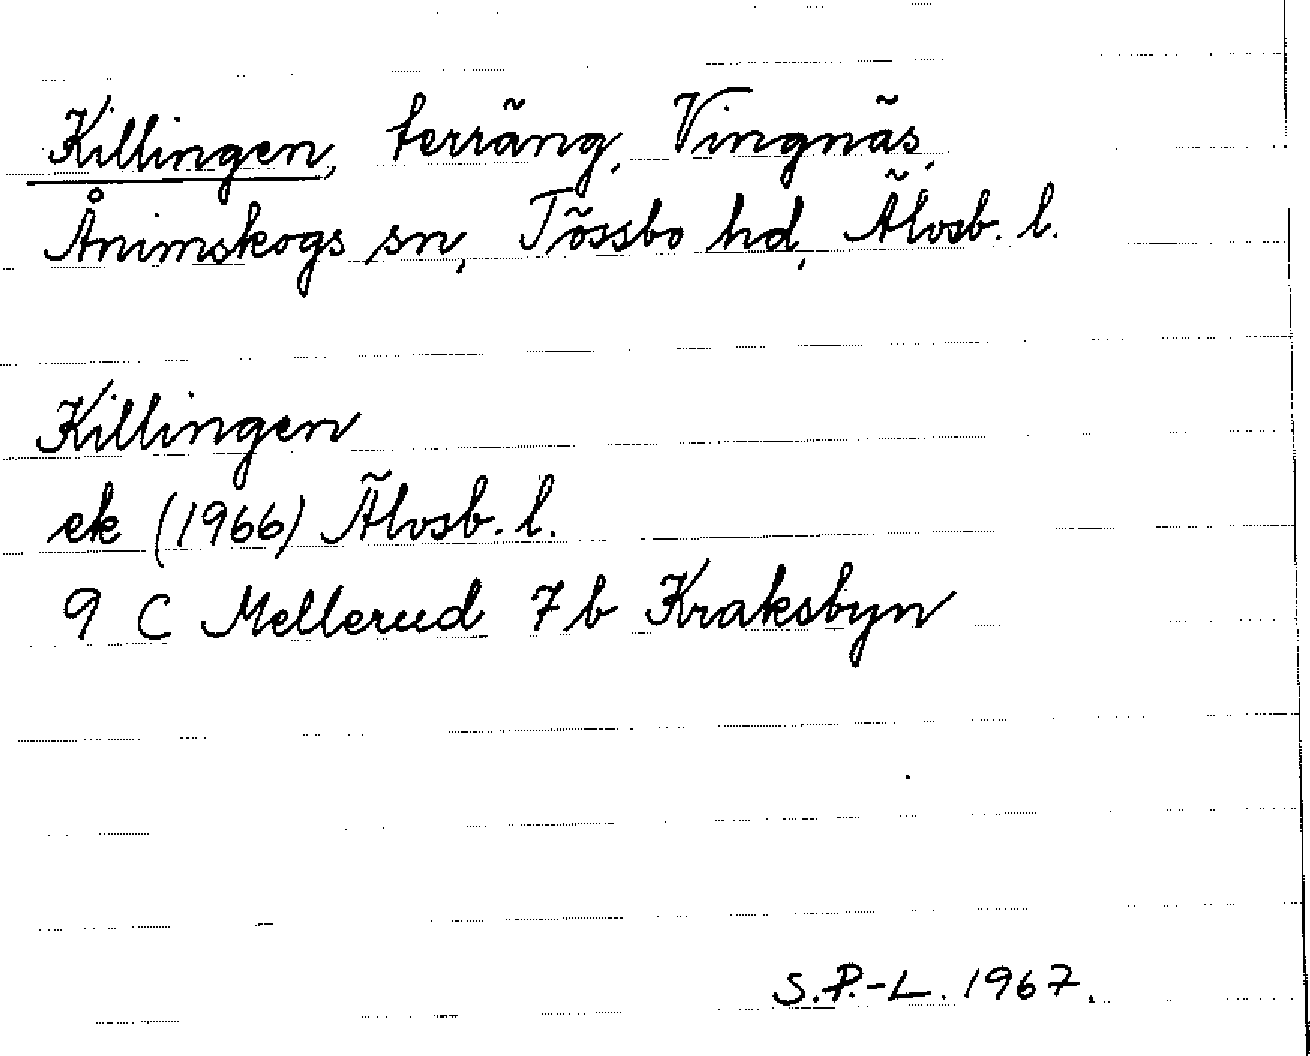 Killingen, terräng, Vingnäs,
Ånimskogs sn, Tössbo hd, Älvsb. l.
Killingen
ek (1966) Älvsb. l.
9 C Mellerud 7 b Kraksbyn
S.P.-L. 1967.